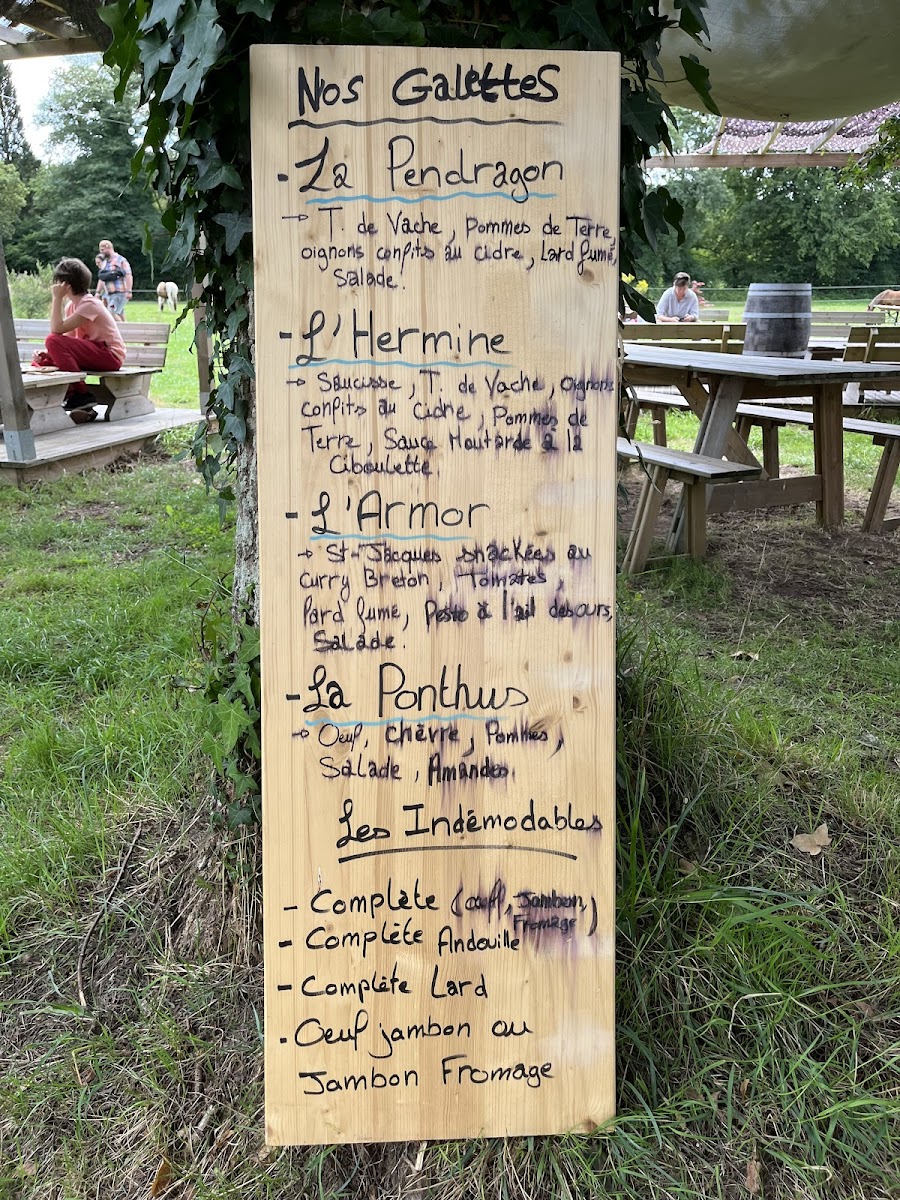 Nos Galettes
- La Pendragon
→ T. de Vache, Pommes de Terre,
oignons confits au cidre, Lard fumé,
Salade.
- L'Hermine
→ Saucisse, T. de Vache, oignons
confits au Cidre, Pommes de
Terre, Sauce Moutarde à la
Ciboulette.
- L'Armor
→ St-Jacques snackées au
Curry Breton, Tomates,
lard fumé, Pesto à l'ail des ours,
Salade.
- La Ponthus
→ Oeuf, Chèvre, Pommes,
Salade, Amandes.
Les Indémodables
- Complète (œuf, Jambon,
Fromage)
- Complète Andouille
- Complète Lard
- Oeuf jambon ou
Jambon Fromage